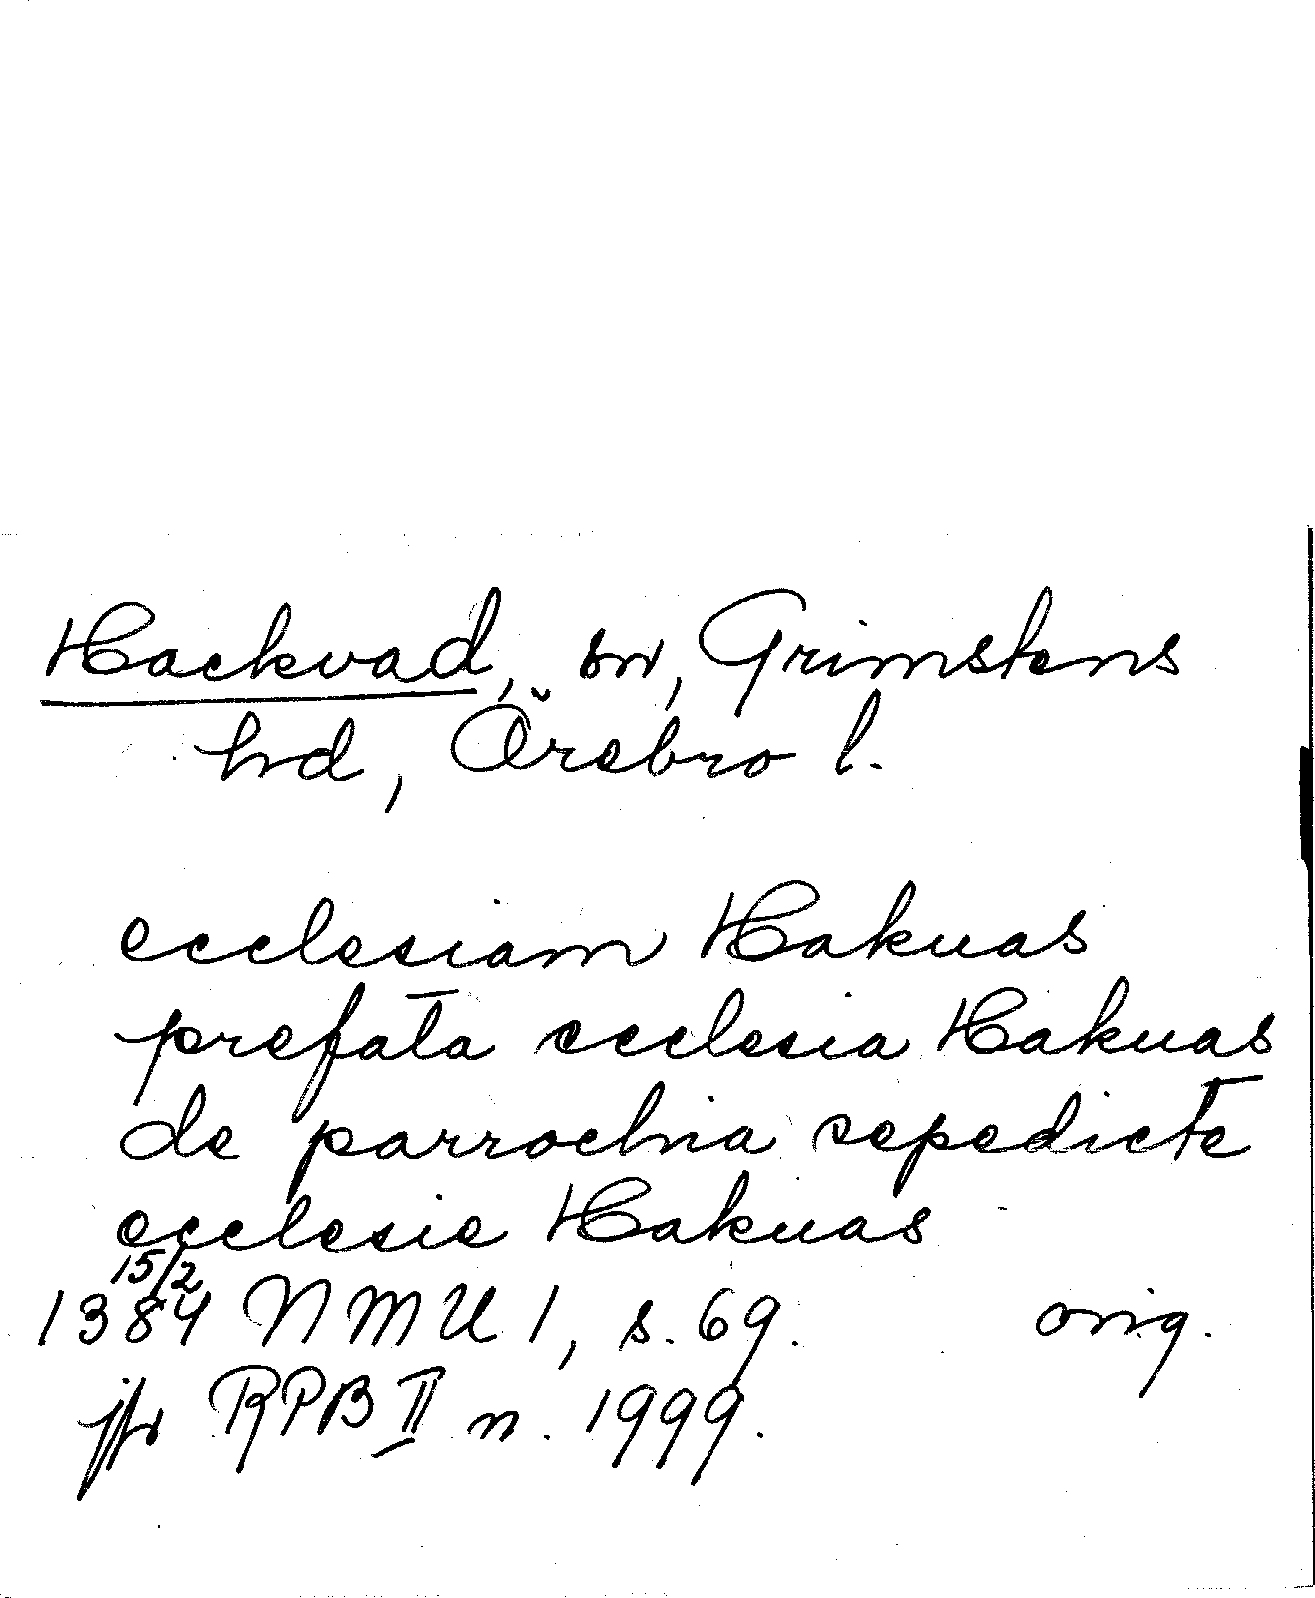 Hackvad, sn, Grimstens
hd, Örebro l.
ecclesiam Hakuas
prefata ecclesia Hakuas
de parrochia sepedicte
ecclesie Hakuas
15/2
1384 NMU 1, s. 69. orig.
jfr RPB II n. 1999.